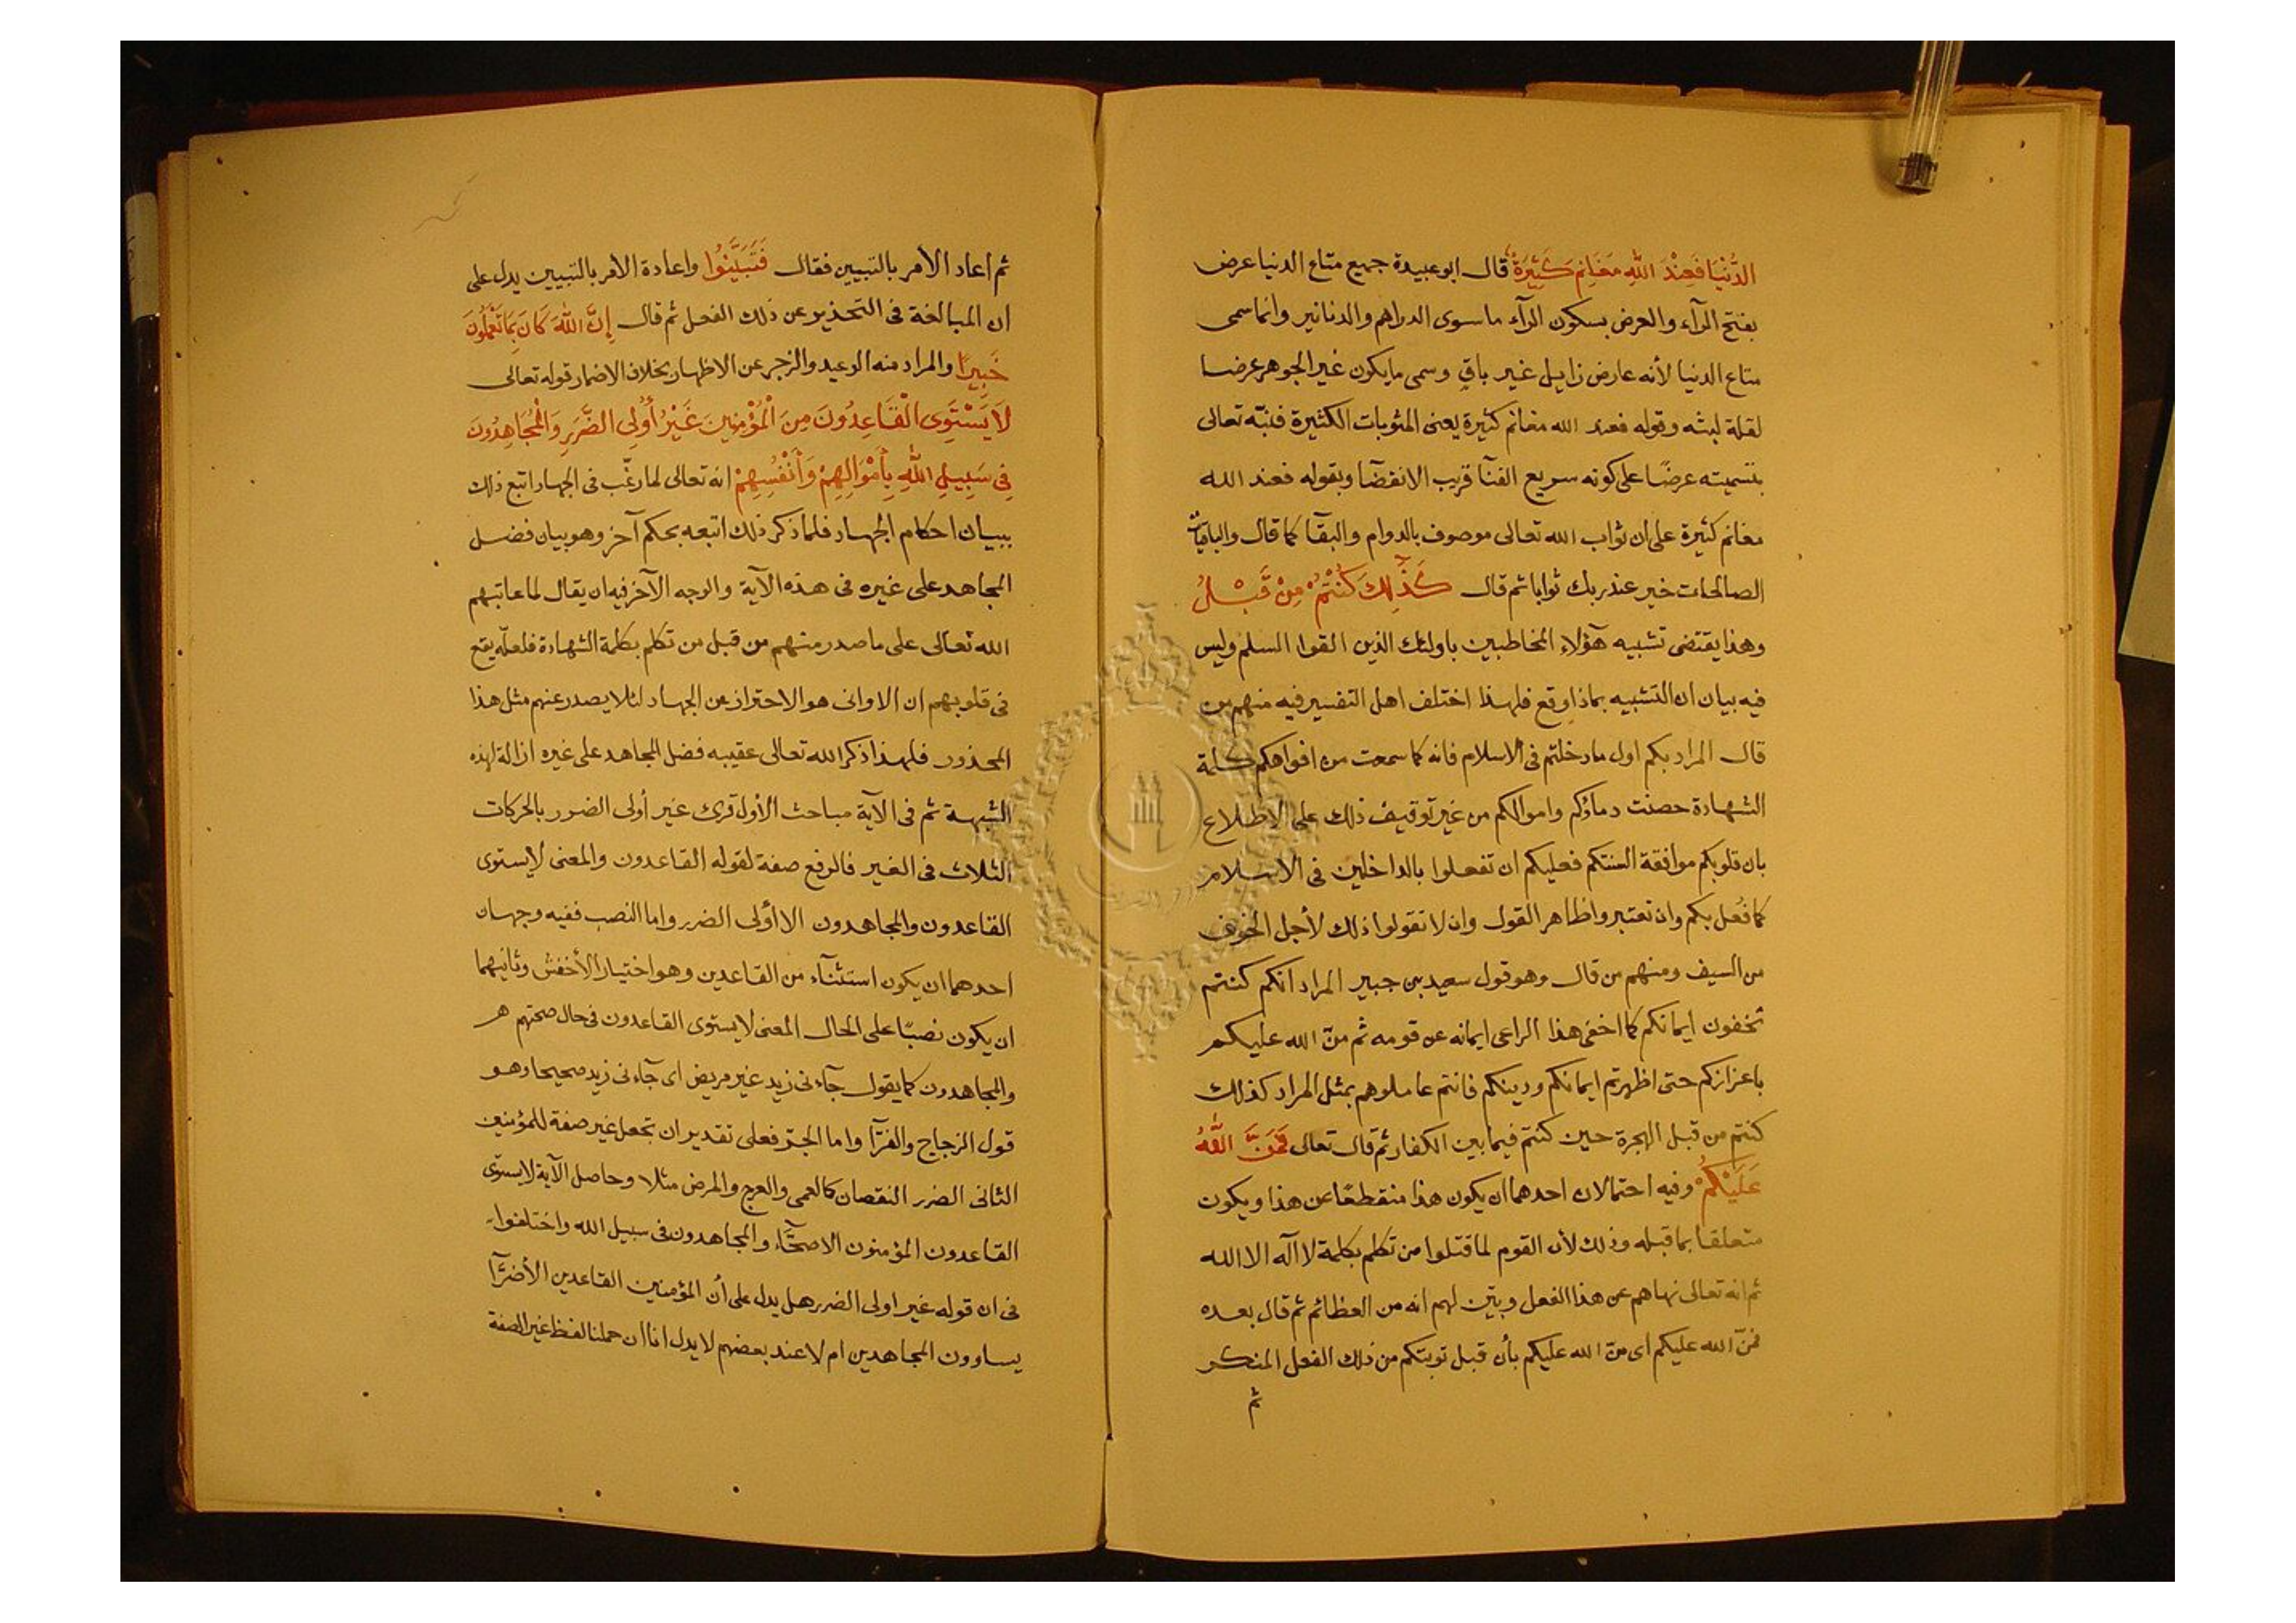 الدُّنْيَا فَعِنْدَ اللهِ مَغَانِمُ كَثِيرَةٌ قال ابو عبيدة جميع متاع الدنيا عرض
بفتح الرآء والعرض بسكون الرآء ما سوى الدراهم والدنانير وانما سمى
متاع الدنيا لأنه عارض زايل غير باقٍ وسمى ما يكون غير الجوهر عرضا
لقلة لبثه وقوله فعند الله مغانم كثيرة يعنى المثوبات الكثيرة فنبّه تعالى
بتسميته عرضًا على كونه سريع الفنآ قريب الانقضآ وبقوله فعند الله
مغانم كثيرة على ان ثواب الله تعالى موصوف بالدوام والبقآ كما قال والباقيات
الصالحات خير عند ربك ثوابا ثم قال كَذَلِكَ كُنْتُمْ مِنْ قَبْلُ
وهذا يقتضى تشبيه هؤلاء المخاطبين باولئك الذين القوا السلم وليس
فيه بيان ان التشبيه بماذا وقع فلهذا اختلف اهل التفسير فيه منهم من
قال المراد بكم اول ما دخلتم فى الاسلام فانه كما سمعت من افواهكم كلمة
الشهادة حصنت دماؤكم واموالكم من غير توقيف ذلك على الاطلاع
بان قلوبكم موافقة السنتكم فعليكم ان تفعلوا بالداخلين فى الاسلام
كما فُعل بكم وان تعتبروا ظاهر القول وان لا تقولوا ذلك لأجل الخوف
من السيف ومنهم من قال وهو قول سعيد بن جبير المراد انكم كنتم
تخفون ايمانكم كما اخفى هذا الراعى ايمانه عن قومه ثم منّ الله عليكم
باعزازكم حتى اظهرتم ايمانكم ودينكم فانتم عاملوهم بمثل المراد كذلك
كنتم من قبل الهجرة حين كنتم فيما بين الكفار ثم قال تعالى فَمَنَّ اللهُ
عَلَيْكُمْ وفيه احتمالان احدهما ان يكون هذا منقطعًا عن هذا ويكون
متعلقا بما قبله وذلك لأن القوم لما قتلوا من تكلم بكلمة لا اله الا الله
ثم انه تعالى نهاهم عن هذا الفعل وبيّن لهم انه من العظائم ثم قال بعده
فمنّ الله عليكم اى منّ الله عليكم بأن قبل توبتكم من ذلك الفعل المنكر
ثم
ثم اعاد الأمر بالتبيين فقال فَتَبَيَّنُوا واعادة الامر بالتبيين يدل على
ان المبالغة فى التحذير عن ذلك الفعل ثم قال إِنَّ اللهَ كَانَ بِمَا تَعْمَلُونَ
خَبِيرًا والمراد منه الوعيد والزجر عن الاظهار بخلاف الاضمار قوله تعالى
لاَ يَسْتَوِى الْقَاعِدُونَ مِنَ الْمُؤْمِنِينَ غَيْرُ أُولِى الضَّرَرِ وَالْمُجَاهِدُونَ
فِى سَبِيلِ اللهِ بِأَمْوَالِهِمْ وَأَنْفُسِهِمْ انه تعالى لما رغّب فى الجهاد اتبع ذلك
ببيان احكام الجهاد فلما ذكر ذلك اتبعه بحكم آخر وهو بيان فضل
المجاهد على غيره فى هذه الآية والوجه الآخر فيه ان يقال لما عاتبهم
الله تعالى على ما صدر منهم من قبل من تكلم بكلمة الشهادة فلعله يقع
فى قلوبهم ان الاوانى هو الاحتراز عن الجهاد لئلا يصدر عنهم مثل هذا
المحذور فلهذا ذكر الله تعالى عقيبه فضل المجاهد على غيره ازالة لهذه
الشبهة ثم فى الآية مباحث الأول قرئ غير أولى الضرر بالحركات
الثلاث فى الغير فالرفع صفة لقوله القاعدون والمعنى لا يستوى
القاعدون والمجاهدون الا أولى الضرر واما النصب ففيه وجهان
احدهما ان يكون استثنآء من القاعدين وهو اختيار الأخفش وثانيهما
ان يكون نصبًا على الحال المعنى لا يستوى القاعدون فى حال صحتهم هر
والمجاهدون كما يقول جآءنى زيد غير مريض اى جآءنى زيد صحيحا وهو
قول الزجاج والفرّآ واما الجرّ فعلى تقدير ان تجعل غير صفة للمؤمنين
الثانى الضرر النقصان كالعمى والعرج والمرض مثلا وحاصل الآية لا يستوى
القاعدون المؤمنون الاصحّآء والمجاهدون فى سبيل الله واختلفوا
فى ان قوله غير اولى الضرر هل يدل على أن المؤمنين القاعدين الأضرّآ
يساوون المجاهدين ام لا عند بعضهم لا يدل انا ان حملنا لفظ غير الصفة